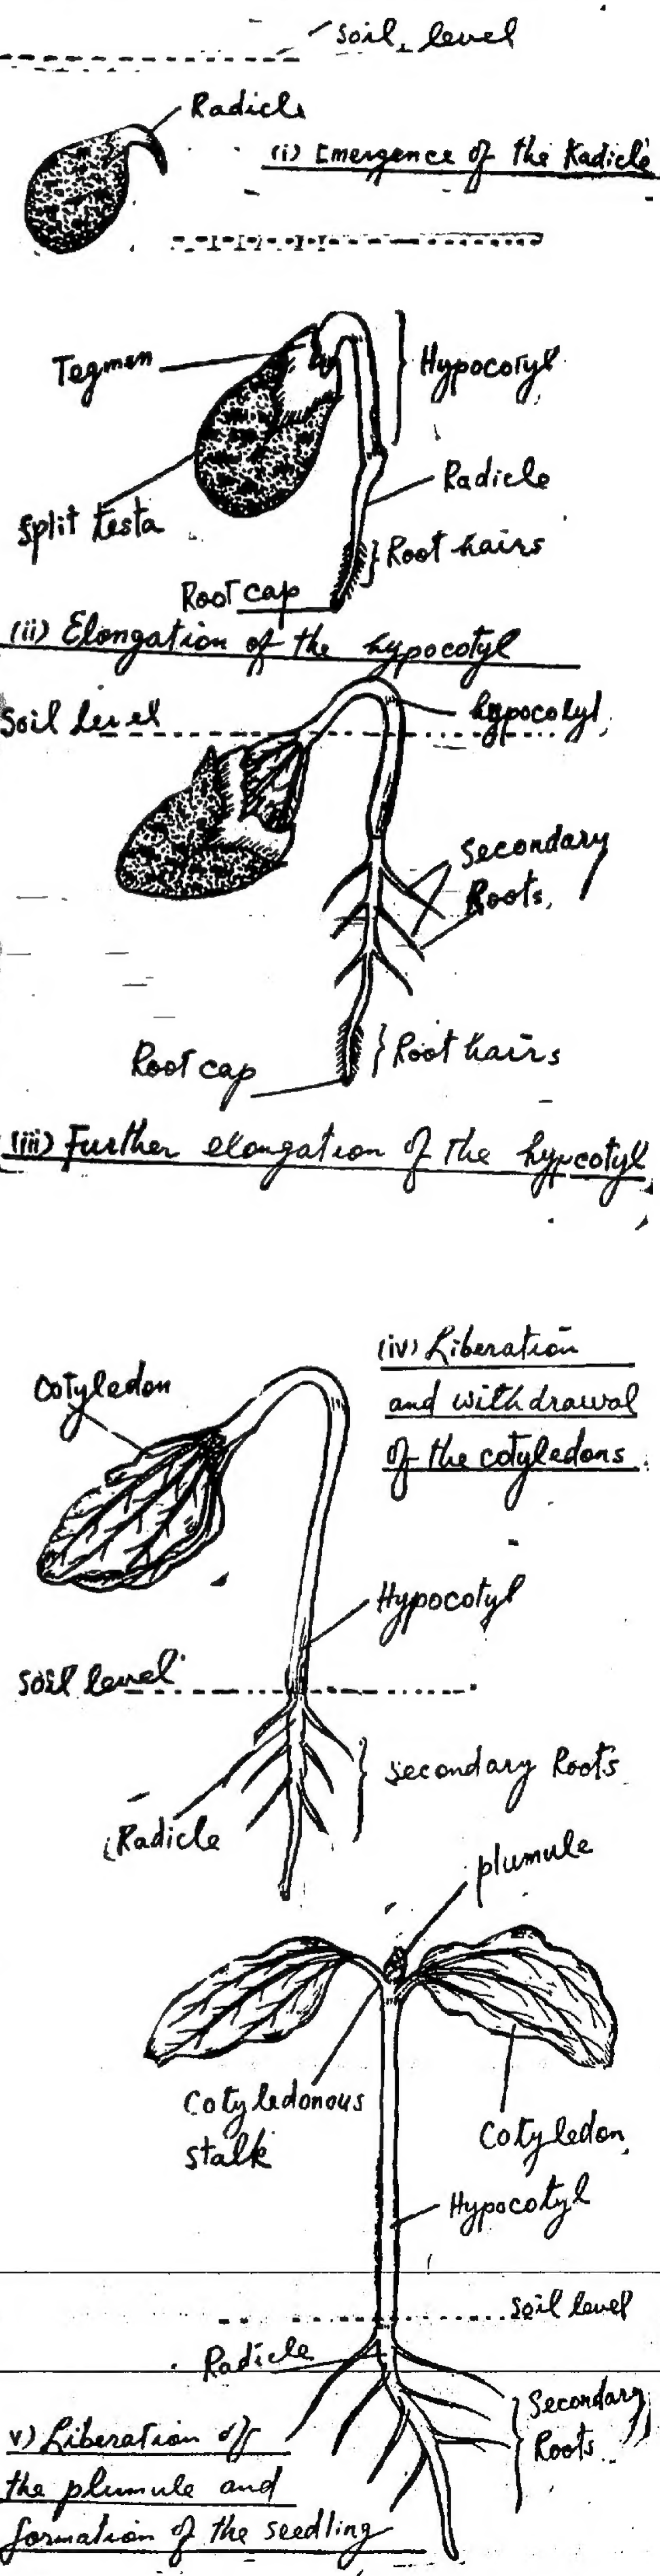 soil level
Radicle
(i) Emergence of the Radicle
Tegmen
Hypocotyl
Radicle
Split testa
Root hairs
Root cap
(ii) Elongation of the hypocotyl
Soil level
hypocotyl
Secondary
Roots
Root hairs
Root cap
(iii) Further elongation of the hypcotyl
(iv) Liberation
and withdrawal
of the cotyledons
Cotyledon
Hypocotyl
Soil level
Secondary Roots
Radicle
plumule
Cotyledonous
stalk
Cotyledon
Hypocotyl
Soil level
Radicle
Secondary
Roots
v) Liberation of
the plumule and
formation of the seedling